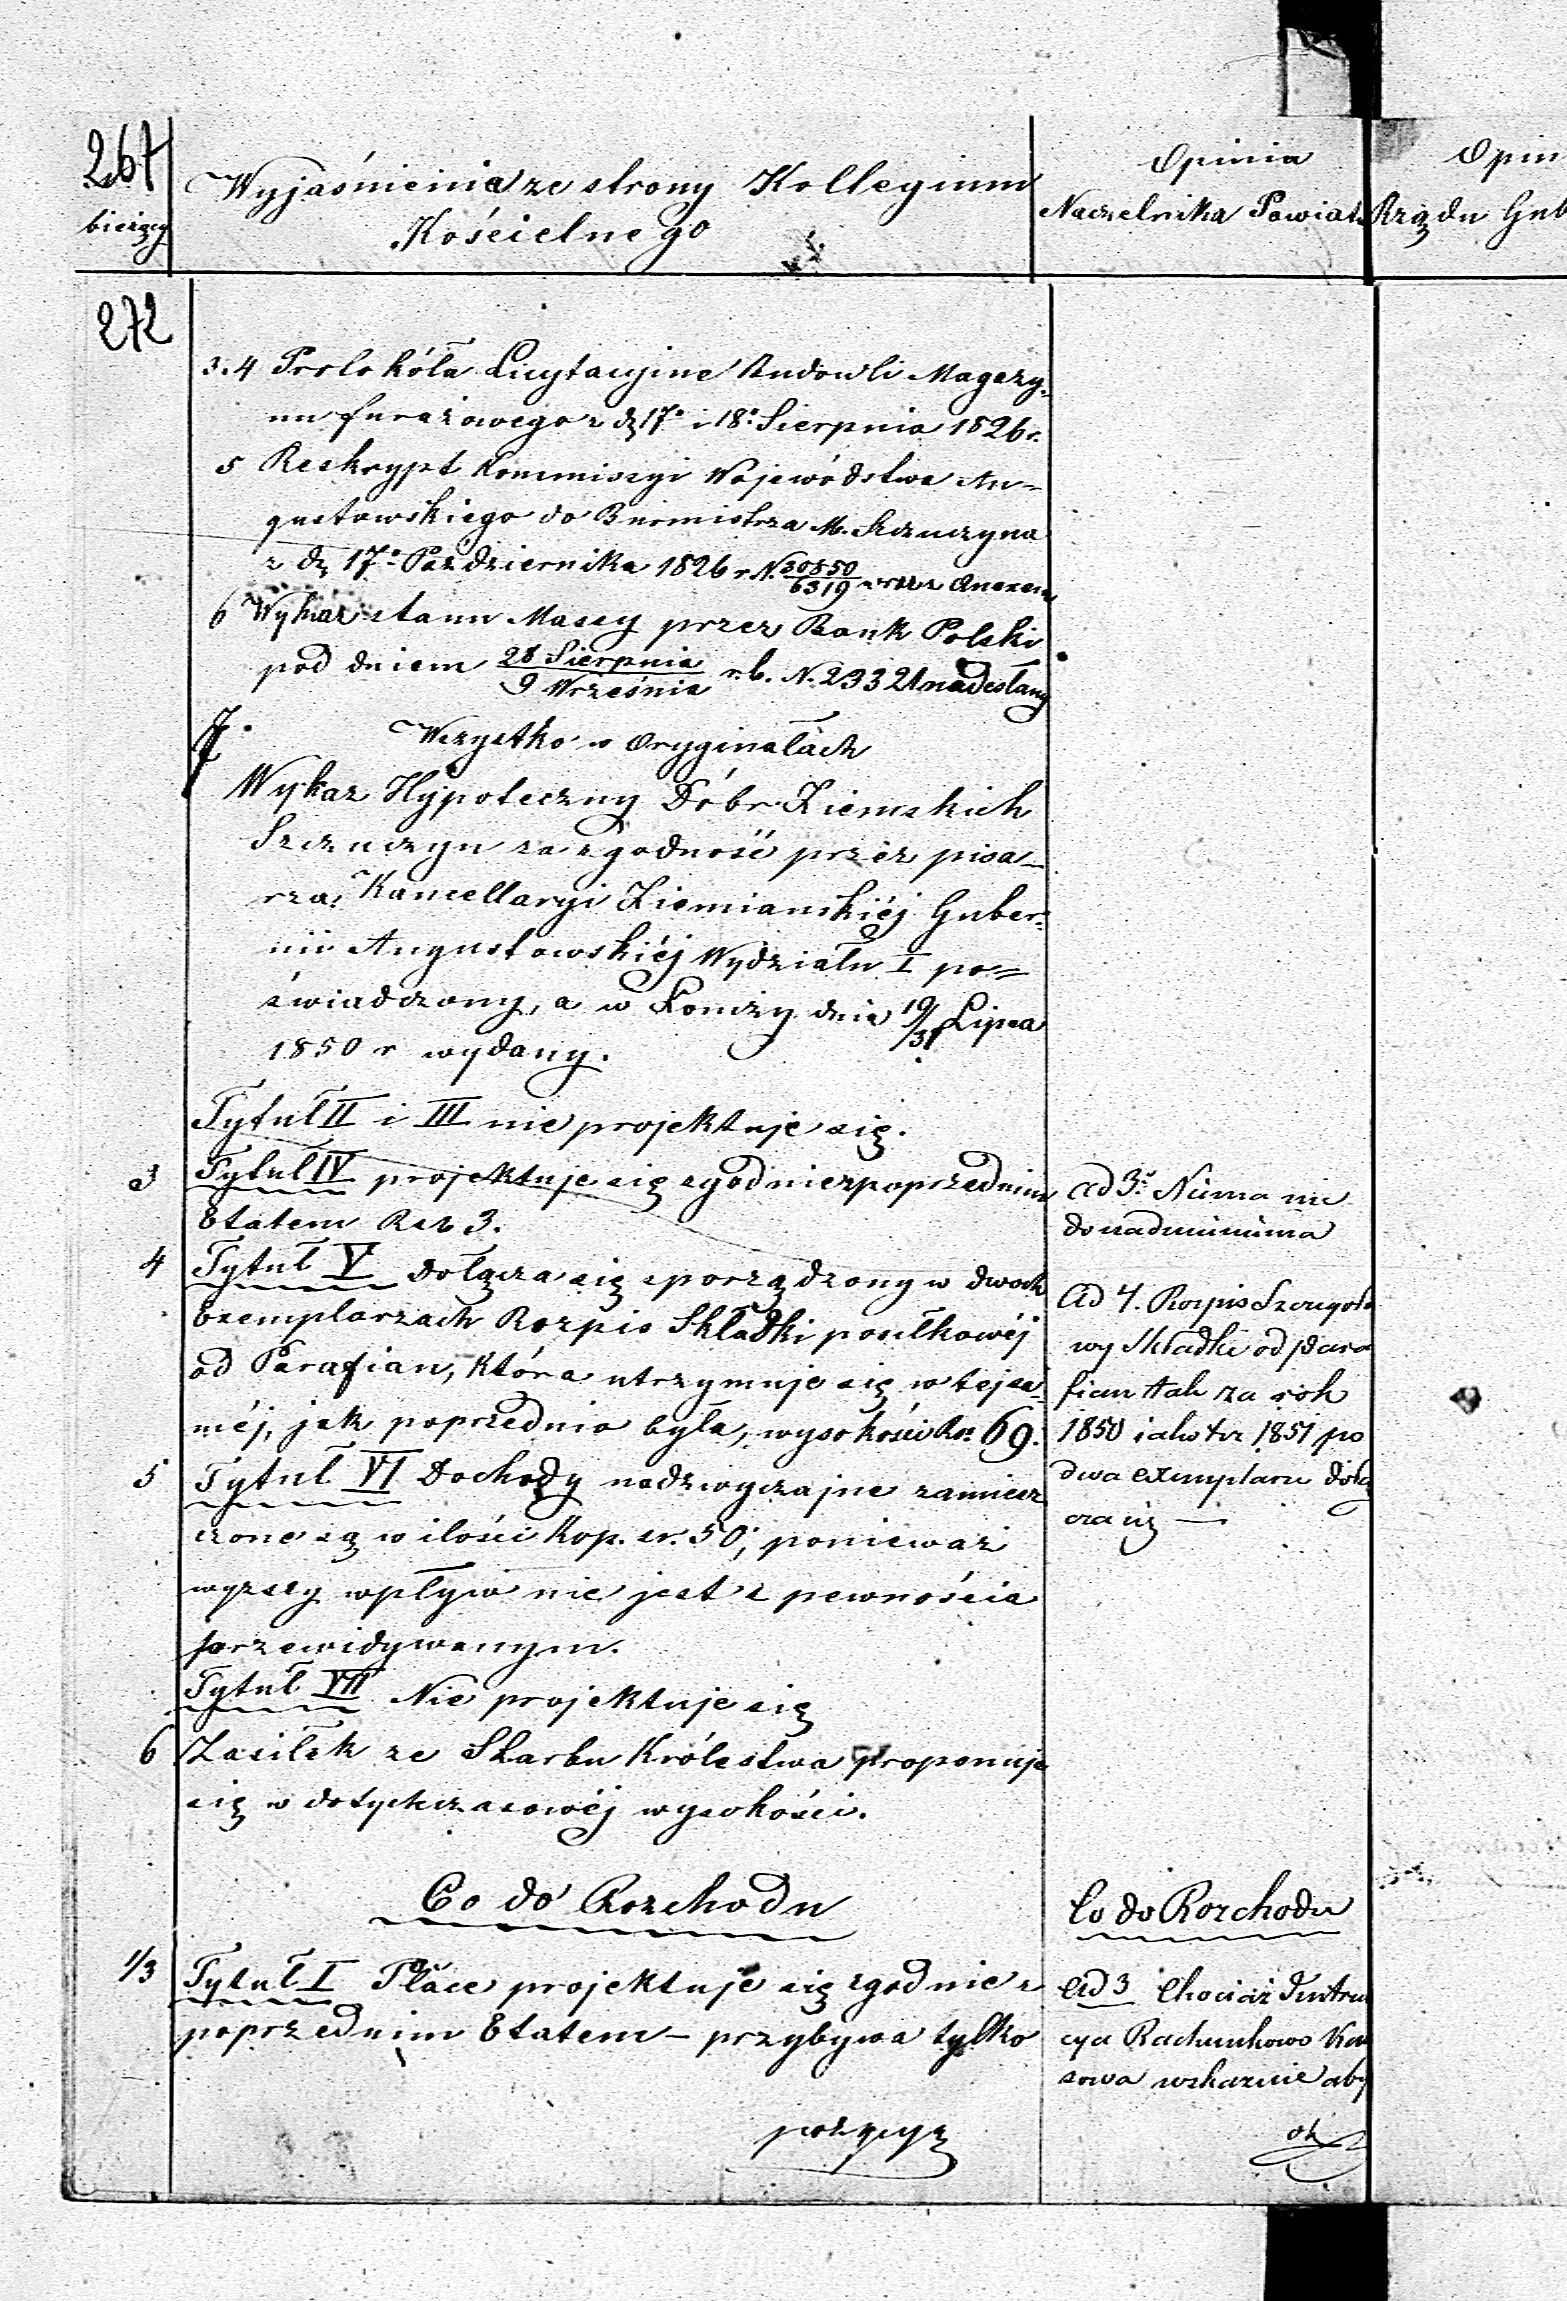 267
bieżący
Wyjaśnienia ze strony Kollegium
Kościelnego
Opinia
Naczelnika Powiatu
Opin
Rządu Gub
272
3.4 Protokóła Licytacyjne Budowli Magazy-
nu furażowego z d. 17° i 18° Sierpnia 1826 r.
5 Reskrypt Kommissyi Wojewódstwa Au=
gustowskiego do Burmistrza M. Szczuczyna
z d. 17° Października 1826 r. N. 30850/6319 wraz z Anexem
6 Wykaz stanu Massy przez Bank Polski
pod dniem 28 Sierpnia/9 Września r.b. N. 23321 nadesłany
Wszystko w Oryginałach
7. Wykaz Hypoteczny Dóbr Ziemskich
Szczuczyn za zgodność przez pisa-
rza Kancellaryi Ziemiańskiéj Guber-
nii Augustowskiéj Wydziału I po=
świadczony, a w Łomży dnia 19/31 Lipca
1850 r wydany.
Tytuł II i III nie projektuje się.
3 Tytuł IV projektuje się zgodnie z poprzednim
Etatem Rsr 3.
4 Tytuł V Dołącza się sporządzony w dwóch
Exemplarzach Rozpis Składki posiłkowéj
od Parafian, która utrzymuje się w tejsa-
méj, jak poprzednio była, wysokości Rsr. 69.
5 Tytuł VI Dochody nadzwyczajne zamiesz
czone są w ilości Kop. sr. 50; ponieważ
wyższy wpływ nie jest z pewnością
przewidywanym.
Tytuł VII Nie projektuje się
6 Zasiłek ze Skarbu Królestwa proponuje
się w dotychczasowéj wysokości.
Co do Rozchodu
1/3 Tytuł I Płace projektuje się zgodnie z
poprzednim Etatem – przybywa tylko
pozycyą
ad 3° Niema nic
do nadmienienia
Ad 4. Rozpis Szczegóło
wy Składki od para
fian tak za rok
1850 jako też 1851 po
dwa exemplarze dołą
cza się —
Co do Rozchodu
Ad 3 Chociaż Instru
cya Rachunkowo Kas
sowa wskazuie aby